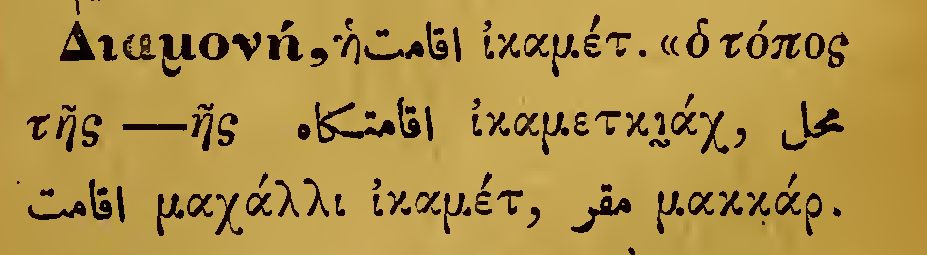 Διαμονή, ἡ اقامت ἰκαμέτ. «ὁ τόπος
τῆς —ῆς اقامتكاه ἰκαμετκι̮άχ, محل
اقامت μαχάλλι ἰκαμέτ, مقر μακκάρ.